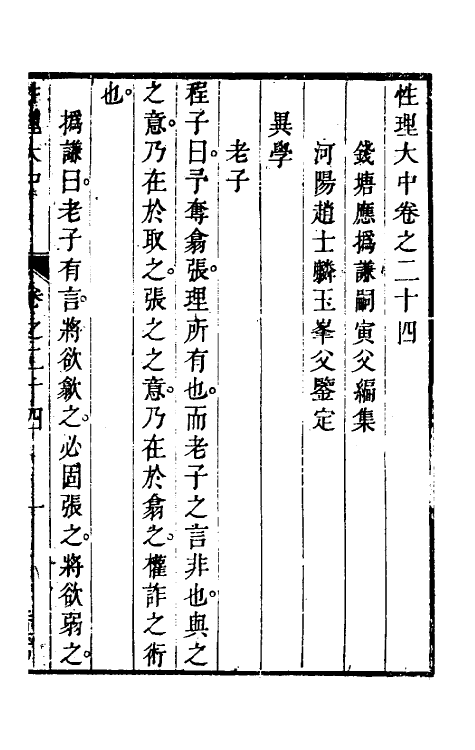 性理大中卷之二十四
錢塘應撝謙嗣寅父編集
河陽趙士麟玉峯父鑒定
異學
老子
程子曰。予奪翕張。理所有也。而老子之言非也。與之
之意。乃在於取之。張之之意。乃在於翕之。權詐之術
也。
撝謙曰。老子有言。將欲歙之。必固張之。將欲弱之。
性理大中 卷之二十四 一